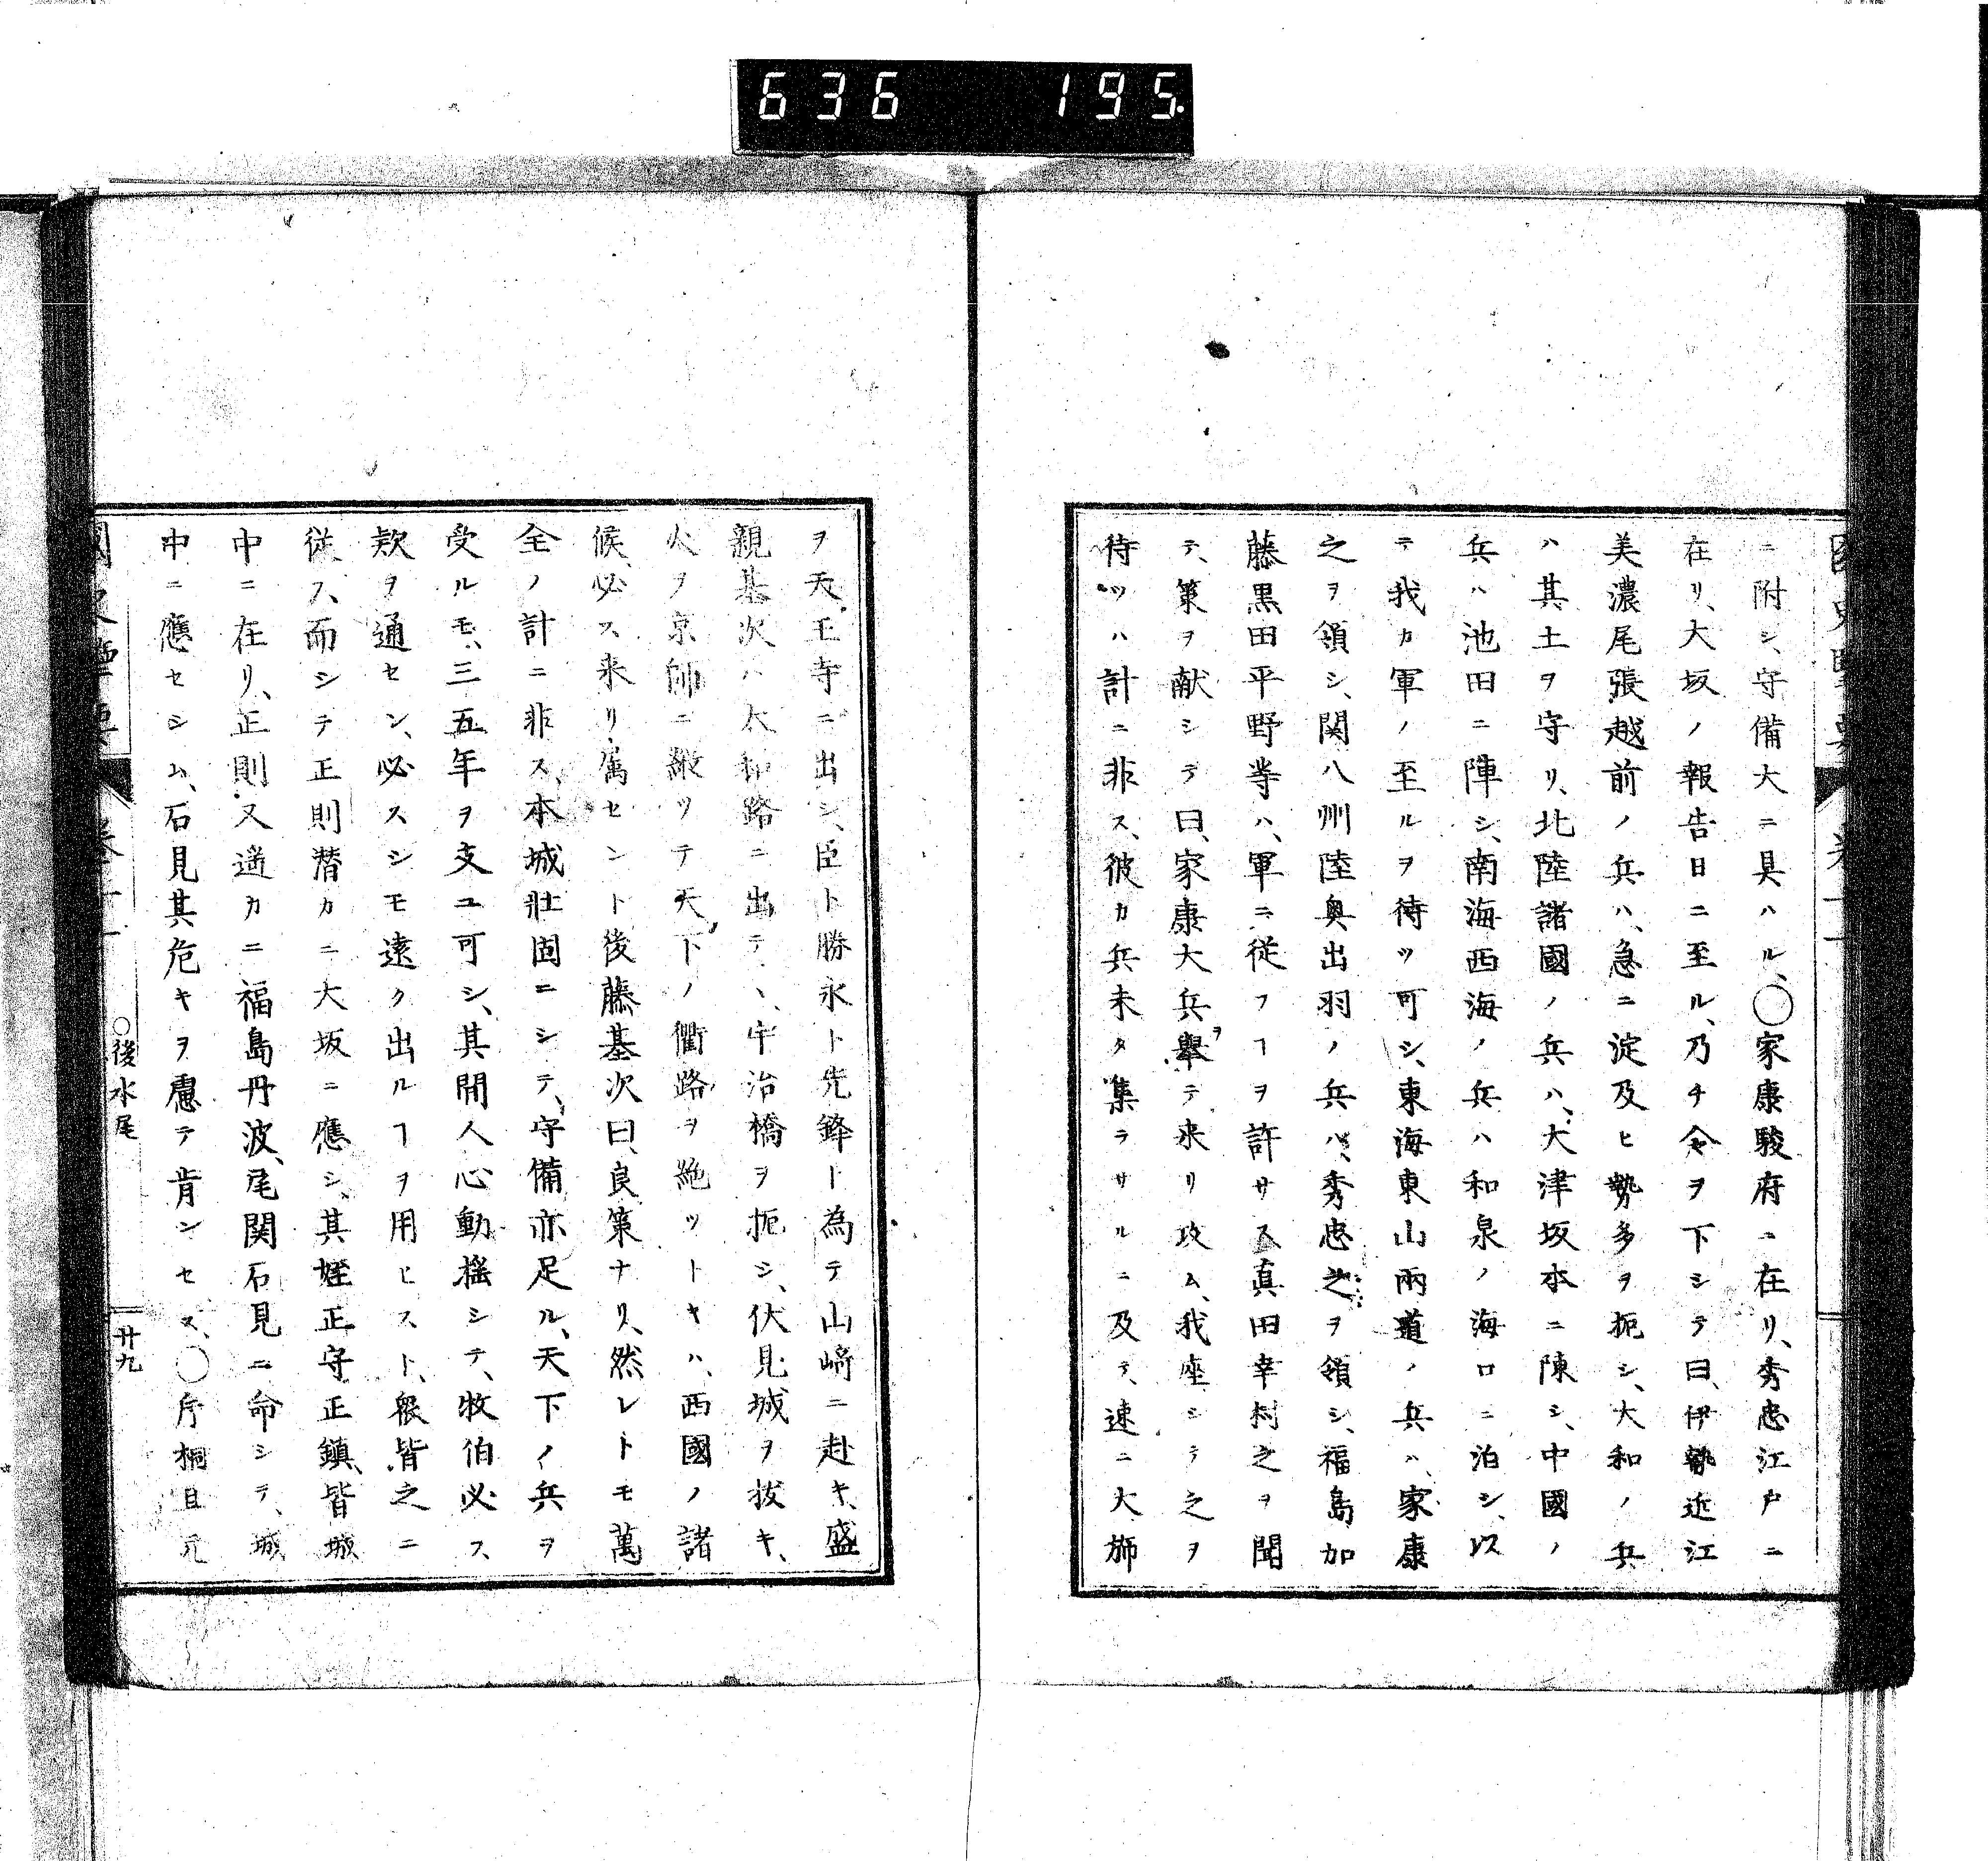 636 195.
ニ附シ、守備大ニ具ハル、○家康駿府ニ在リ、秀忠江戸ニ
在リ、大坂ノ報告日ニ至ル、乃チ令ヲ下シテ曰、伊勢近江
美濃尾張越前ノ兵ハ、急ニ淀及ヒ勢多ヲ扼シ、大和ノ兵
ハ其土ヲ守リ、北陸諸國ノ兵ハ、大津坂本ニ陳シ、中國ノ
兵ハ池田ニ陣シ、南海西海ノ兵ハ和泉ノ海口ニ泊シ、以
テ我カ軍ノ至ルヲ待ツ可シ、東海東山兩道ノ兵ハ、家康
之ヲ領シ、関八州陸奥出羽ノ兵ハ、秀忠之ヲ領シ、福島加
藤黒田平野等ハ、軍ニ従フヿヲ許サス真田幸村之ヲ聞
テ、策ヲ献シテ曰、家康大兵ヲ舉テ来リ攻ム、我座シテ之ヲ
待ツハ計ニ非ス、彼カ兵未タ集ラサルニ及テ、速ニ大旆
ヲ天王寺ニ出シ、臣ト勝永ト先鋒ト為テ山﨑ニ赴キ、盛
親基次ハ大和路ニ出テ、宇治橋ヲ扼シ、伏見城ヲ抜キ、
火ヲ京師ニ縦ツテ天下ノ衢路ヲ絶ツトキハ、西國ノ諸
候、必ス来リ属セント後藤基次曰、良策ナリ、然レトモ萬
全ノ計ニ非ス、本城壮固ニシテ、守備亦足ル、天下ノ兵ヲ
受ルモ、三五年ヲ支ユ可シ、其間人心動揺シテ、牧伯必ス
款ヲ通セン、必スシモ遠ク出ルヿヲ用ヒスト、衆皆之ニ
従フ、而シテ正則潜カニ大坂ニ應シ、其姪正守正鎮、皆城
中ニ在リ、正則又遥カニ福島丹波、尾関石見ニ命シテ、城
中ニ應セシム、石見其危キヲ慮テ肯ンセス、○片桐且元
○後水尾
廿九